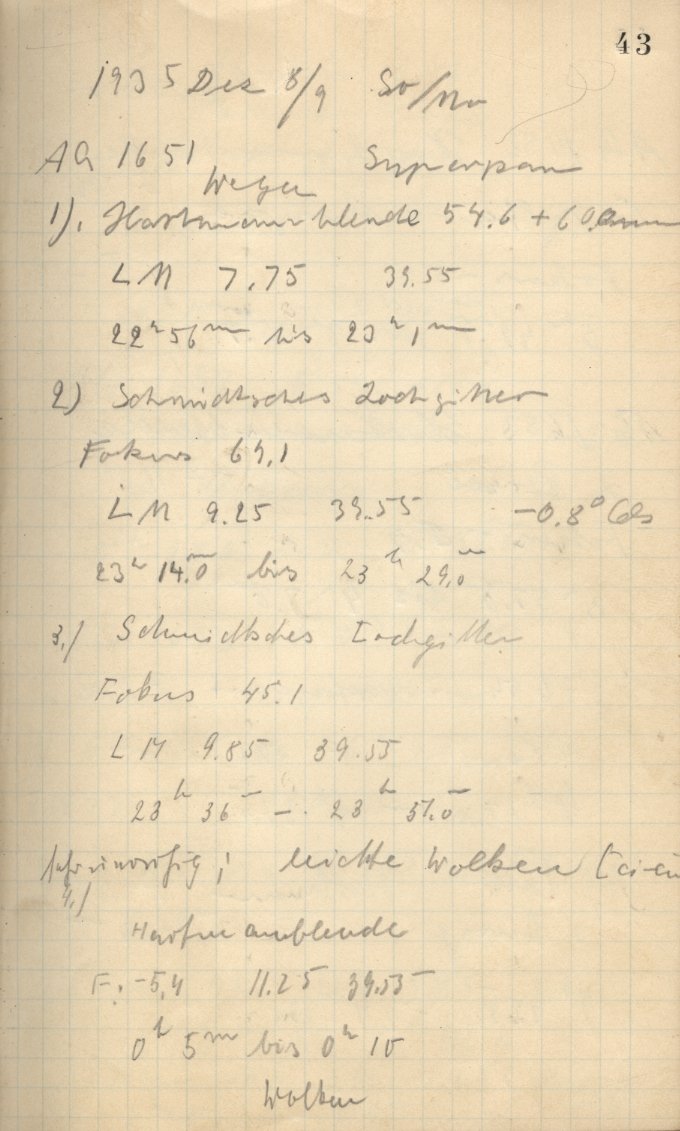 43
1935 Dez 8/9 So/Mo
AG 1651 Superpan
Weger
1). Hartmannblende 54.6 + 60.
LM 7.75 39.55
22h 56m bis 23h 1m
2) Schmidtsches Lochgitter
Fokus 64.1
LM 9.25 39.55 -0.8°
23h 14.0m bis 23h 29.0m
3.) Schmidtsches Lochgitter
Fokus 45.1
LM 9.85 39.55
23h 36m - 23h 51.0m
sehr unruhig; leichte Wolken
4.)
Hartmannblende
F. -5,4 11.25 39.55
0h 5m bis 0h 10
Wolken